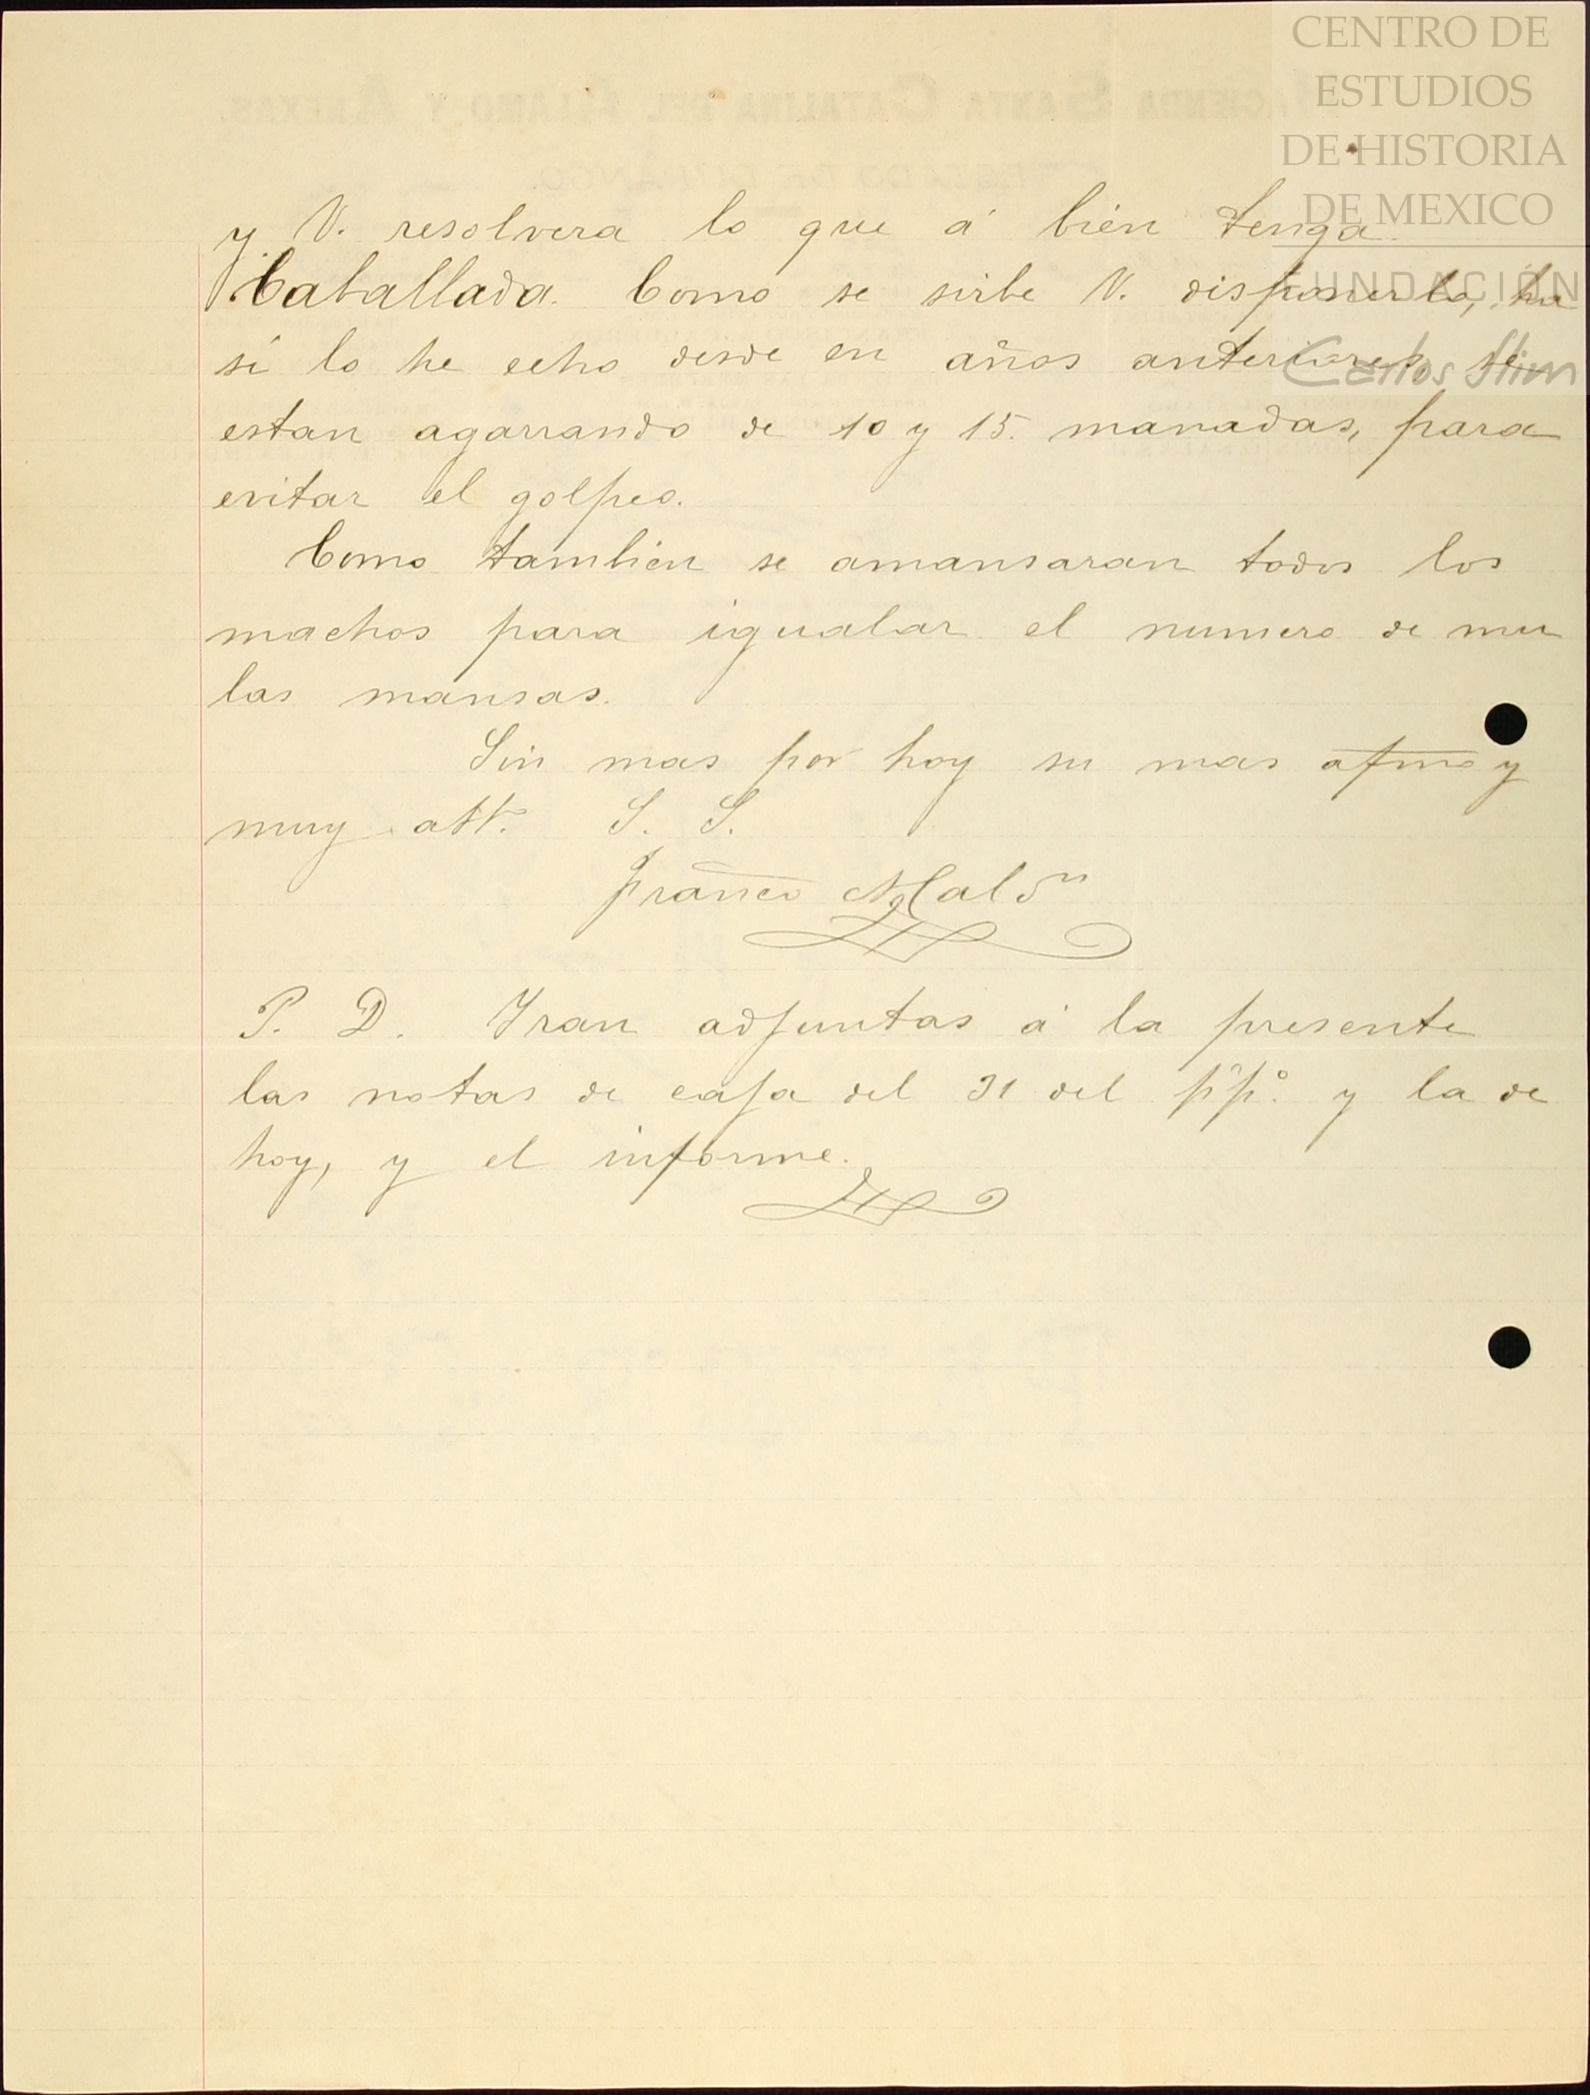 CENTRO DE
ESTUDIOS
DE HISTORIA
DE MEXICO
FUNDACIÓN
Carlos Slim
HACIENDA SANTA CATALINA DEL ALAMO Y ANEXAS.
y V. resolvera lo que á bién tenga.
Caballada. Como se sirbe V. disponerlo, ha
si lo he echo desde en años anteriores, se
estan agarrando de 10 y 15. manadas, para
evitar el golpeo.
Como tambien se amansaran todos los
machos para igualar el numero de mu
las mansas.
Sin mas por hoy su mas afmo y
muy att. S. S.
Franco Maldn
P. D. Yran adjuntas á la presente
las notas de caja del 31 del pºpº. y la de
hoy, y el informe.